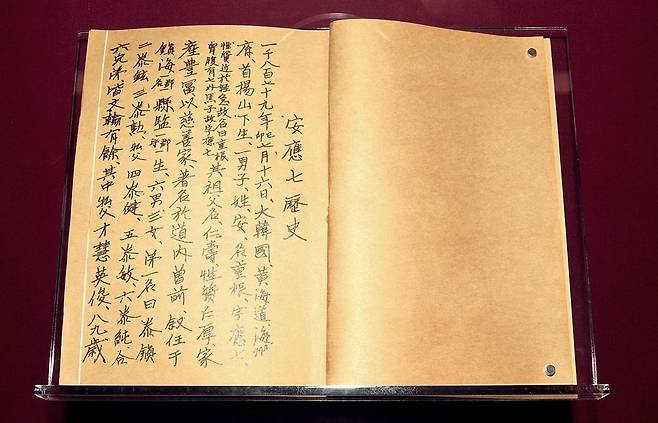 安應七歷史
一千八百七十九年己卯七月十六日、大韓國、黃海道、海州
府、首楊山下生、一男子、姓、安、名重根、字應七、
性質近於輕急故名曰重根
胸腹有七介黑子故字應七
其祖父名、仁壽、性質仁厚、家
產豊富、以慈善家、著名於道內、曾前、敘任于
鎮海郡名縣監郡守一生、六男三女、第一名曰泰鎮
二泰鉉、三泰勳、我父四泰健、五泰敏、六泰純、合
六兄弟、皆文翰有餘、其中我父才慧英俊、八九歲、